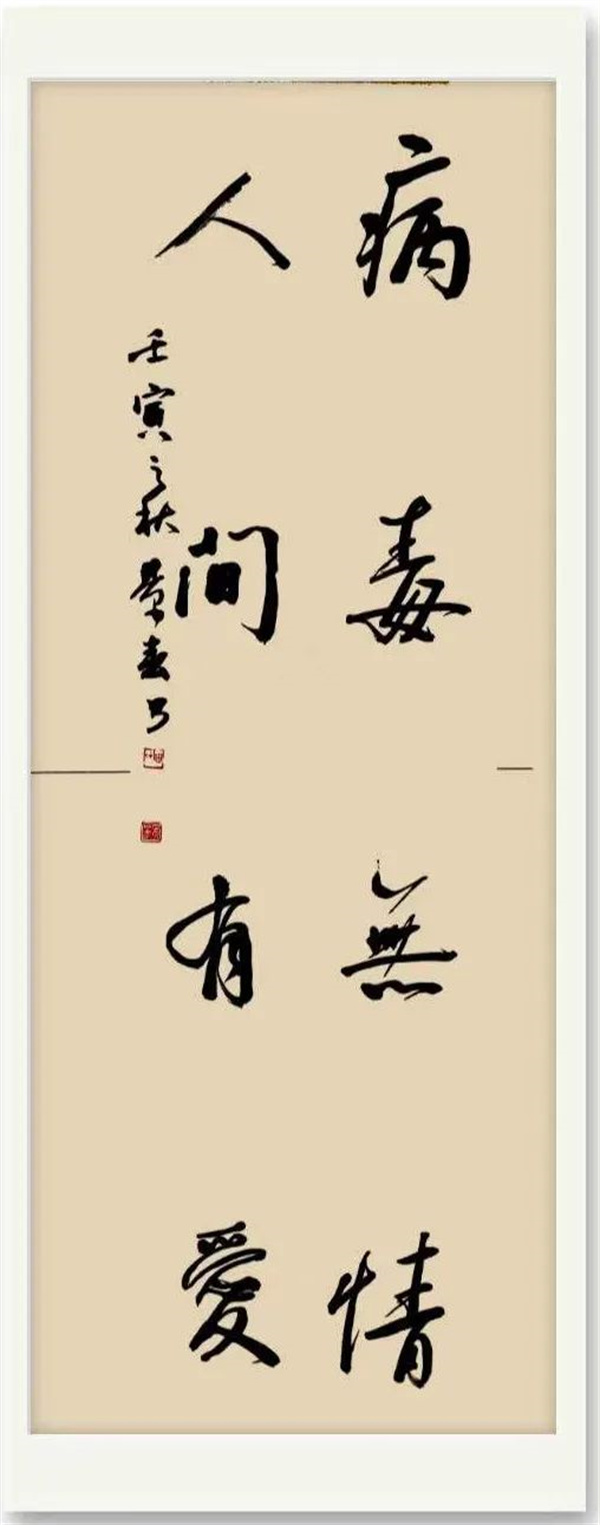 病毒無情
人間有愛
壬寅之秋景春书